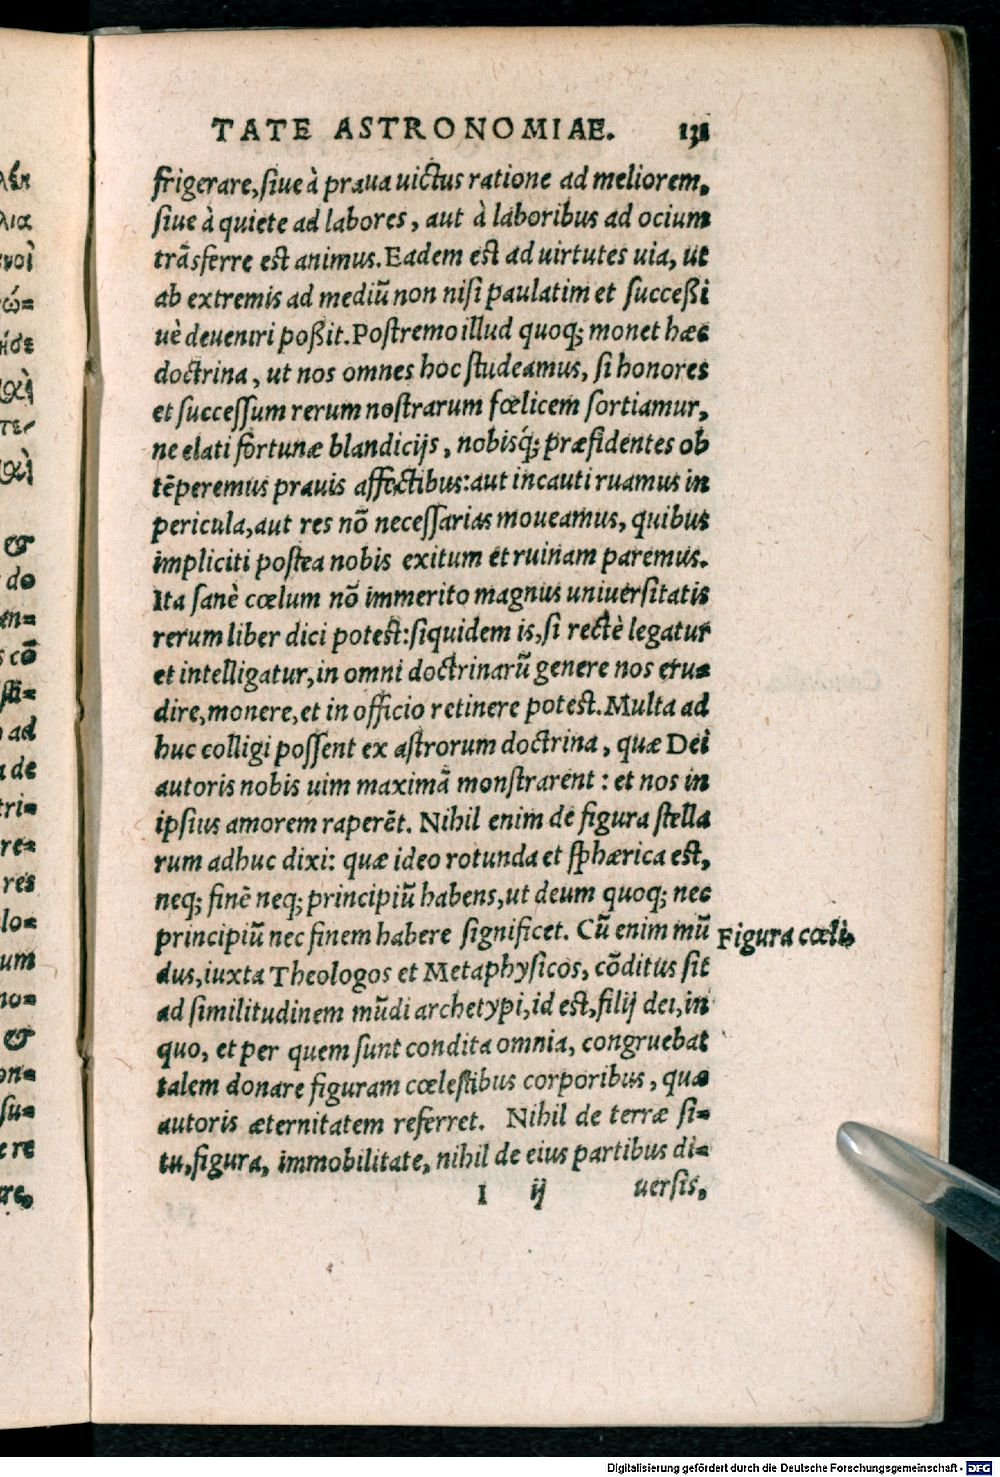 TATE ASTRONOMIAE. 131
frigerare, siue à praua uictus ratione ad meliorem,
siue à quiete ad labores, aut à laboribus ad ocium
trāsferre est animus. Eadem est ad uirtutes uia, ut
ab extremis ad mediū non nisi paulatim et successi
uè deueniri possit. Postremo illud quoq; monet hæc
doctrina, ut nos omnes hoc studeamus, si honores
et successum rerum nostrarum fœlicem sortiamur,
ne elati fortunæ blandicijs, nobisq́; præfidentes ob
tēperemus prauis affectibus: aut incauti ruamus in
pericula, aut res nō necessarias moueamus, quibus
impliciti postea nobis exitum et ruinam paremus.
Ita sanè cœlum nō immerito magnus uniuersitatis
rerum liber dici potest: siquidem is, si rectè legatur
et intelligatur, in omni doctrinarū genere nos eru=
dire, monere, et in officio retinere potest. Multa ad
huc colligi possent ex astrorum doctrina, quæ Dei
autoris nobis uim maximā monstrarent: et nos in
ipsius amorem raperēt. Nihil enim de figura stella
rum adhuc dixi: quæ ideo rotunda et sphærica est,
neq; finē neq; principiū habens, ut deum quoq; nec
principiū nec finem habere significet. Cū enim mū
Figura cœli.
dus, iuxta Theologos et Metaphysicos, cōditus sit
ad similitudinem mūdi archetypi, id est, filij dei, in
quo, et per quem sunt condita omnia, congruebat
talem donare figuram cœlestibus corporibus, quæ
autoris æternitatem referret. Nihil de terræ si=
tu, figura, immobilitate, nihil de eius partibus di=
I ij uersis,
λια
do
en=
s cō
ad
de
tri=
re=
res
lo=
um
no=
&
on=
su=
re
Digitalisierung gefördert durch die Deutsche Forschungsgemeinschaft - DFG